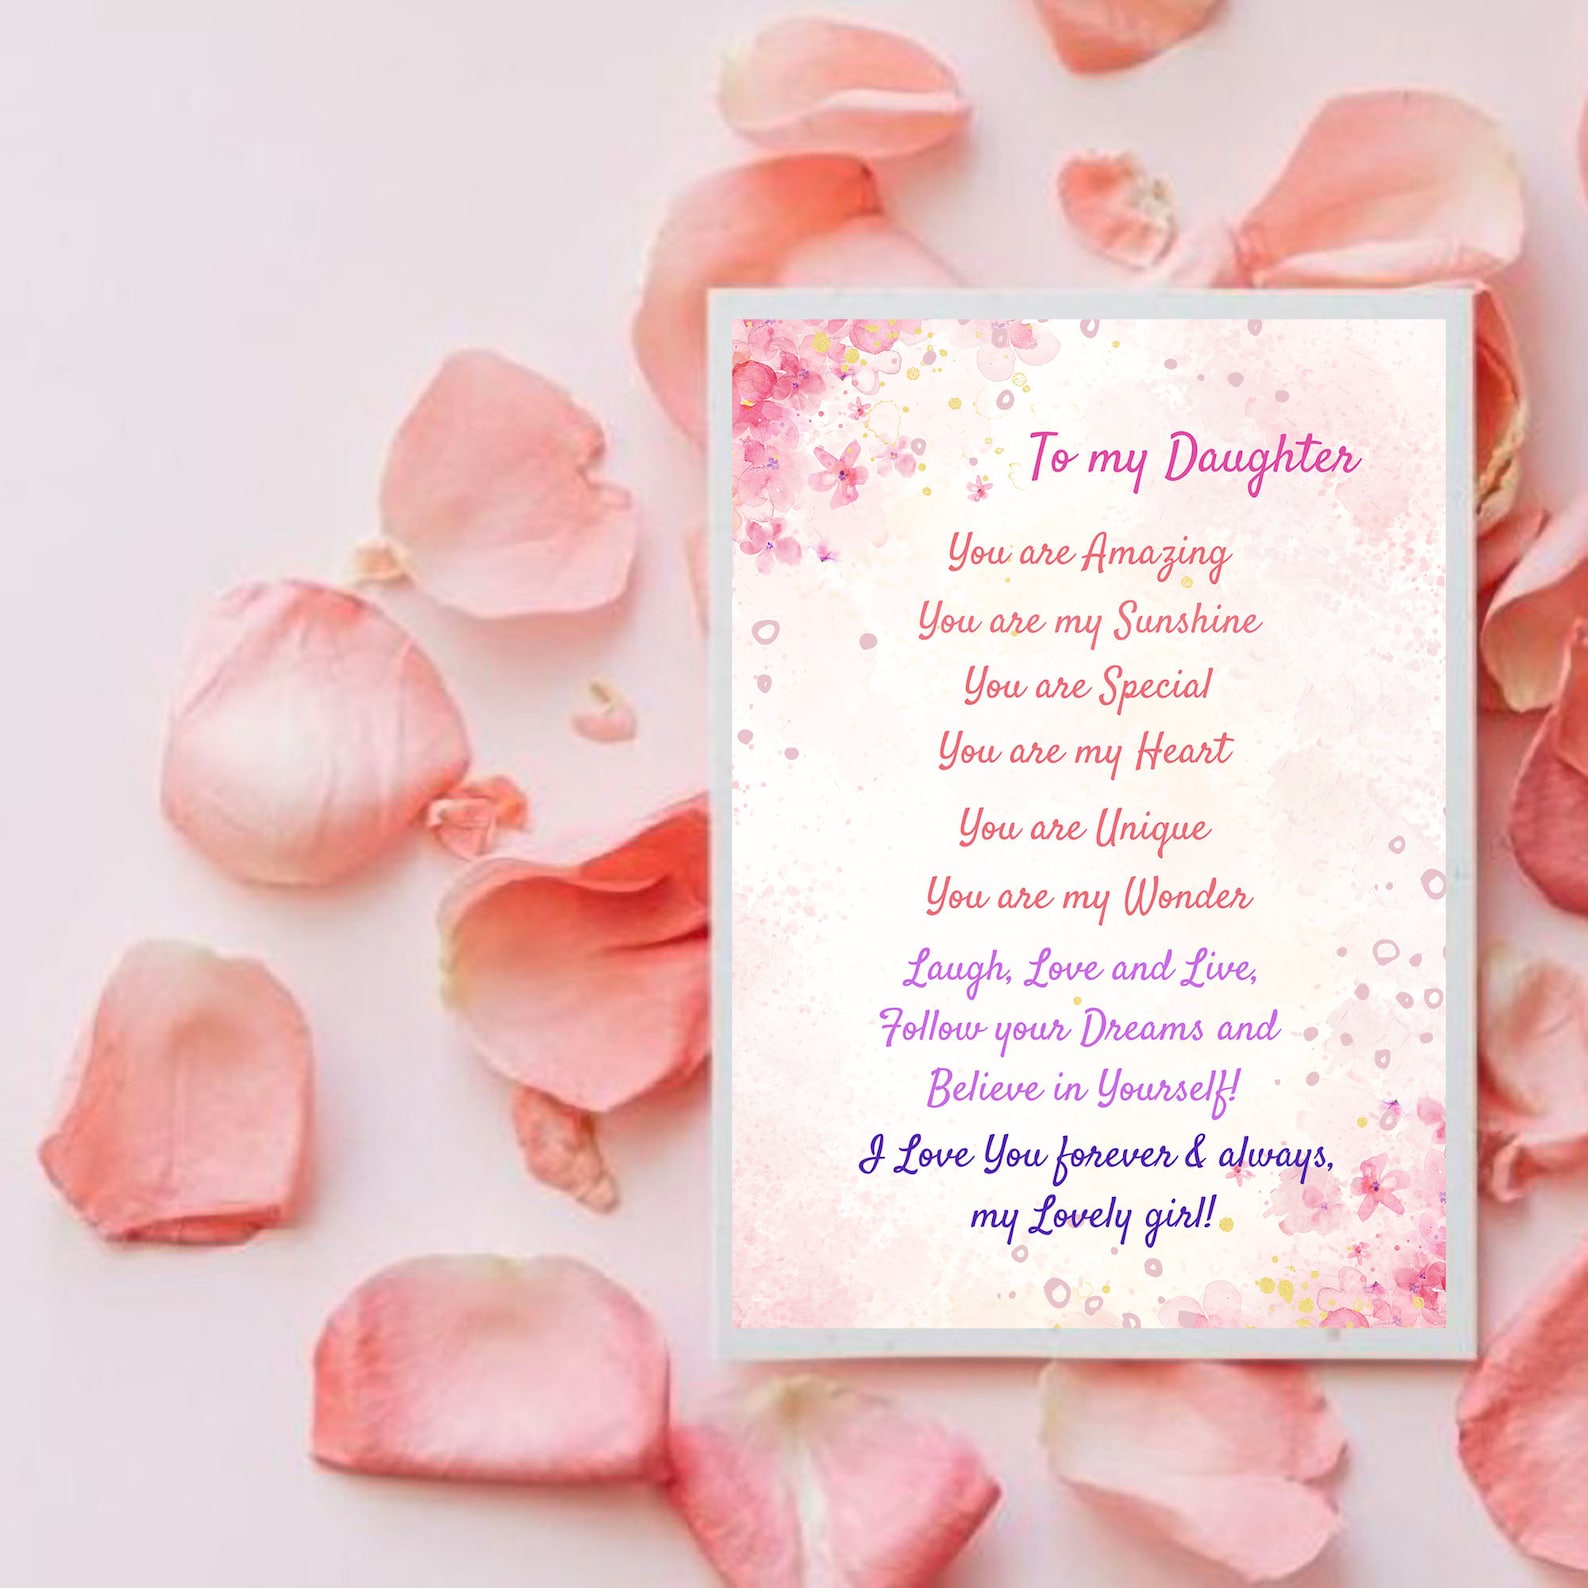 To my Daughter
You are Amazing
You are my Sunshine
You are Special
You are my Heart
You are Unique
You are my Wonder
Laugh, Love and Live,
Follow your Dreams and
Believe in Yourself!
I Love You forever & always,
my Lovely girl!